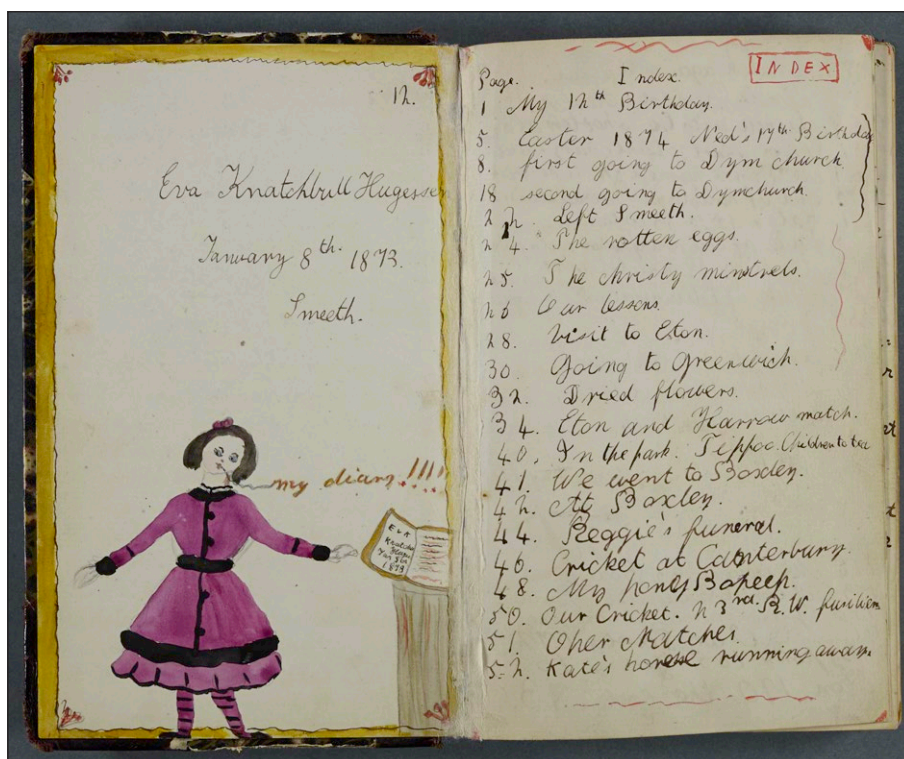 12.
Eva Knatchbull Hugessen
January 8th 1873.
Smeeth.
my diary!!!!
EVA
1873
INDEX
Page. Index.
1 My 12th Birthday.
5. Easter 1874 Ned's 17th Birthday
8. first going to Dymchurch
18 second going to Dymchurch.
22. Left Smeeth.
24. The rotten eggs.
25. The christy minstrels.
26 Our lessons.
28. Visit to Eton.
30. Going to Greenwich.
32. Dried flowers.
34. Eton and Harrow match.
40. In the park. Tippoo. Children to tea
41. We went to Boxley.
42. At Boxley.
44. Reggie's funeral.
46. Cricket at Canterbury.
48. My pony Bopeep.
50. Our Cricket. 23rd R.W. fusiliers
51. Oher Matches.
52. Kate's horse running away.